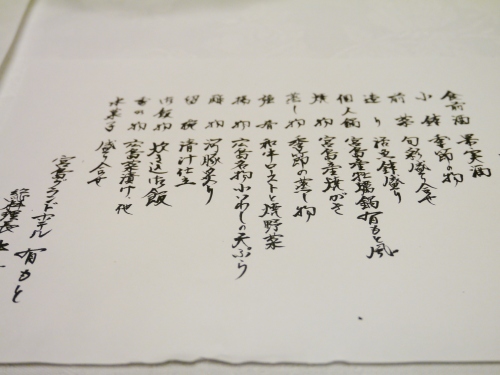 食前酒 果実酒
小鉢 季節の物
前菜 旬彩盛り合せ
造り 活魚鉢盛り
個人鍋 宮島産牡蠣鍋有もと風
焼物 宮島産焼がき
蒸し物 季節の蒸し物
強肴 和牛ローストと焼野菜
揚物 広島名物小いわしの天ぷら
酢物 河豚炙り
留椀 清汁仕立
御飯物 炊き込御飯
香の物 広島菜漬け、他
水菓子 盛り合せ
宮島グランドホテル 有もと
総料理長